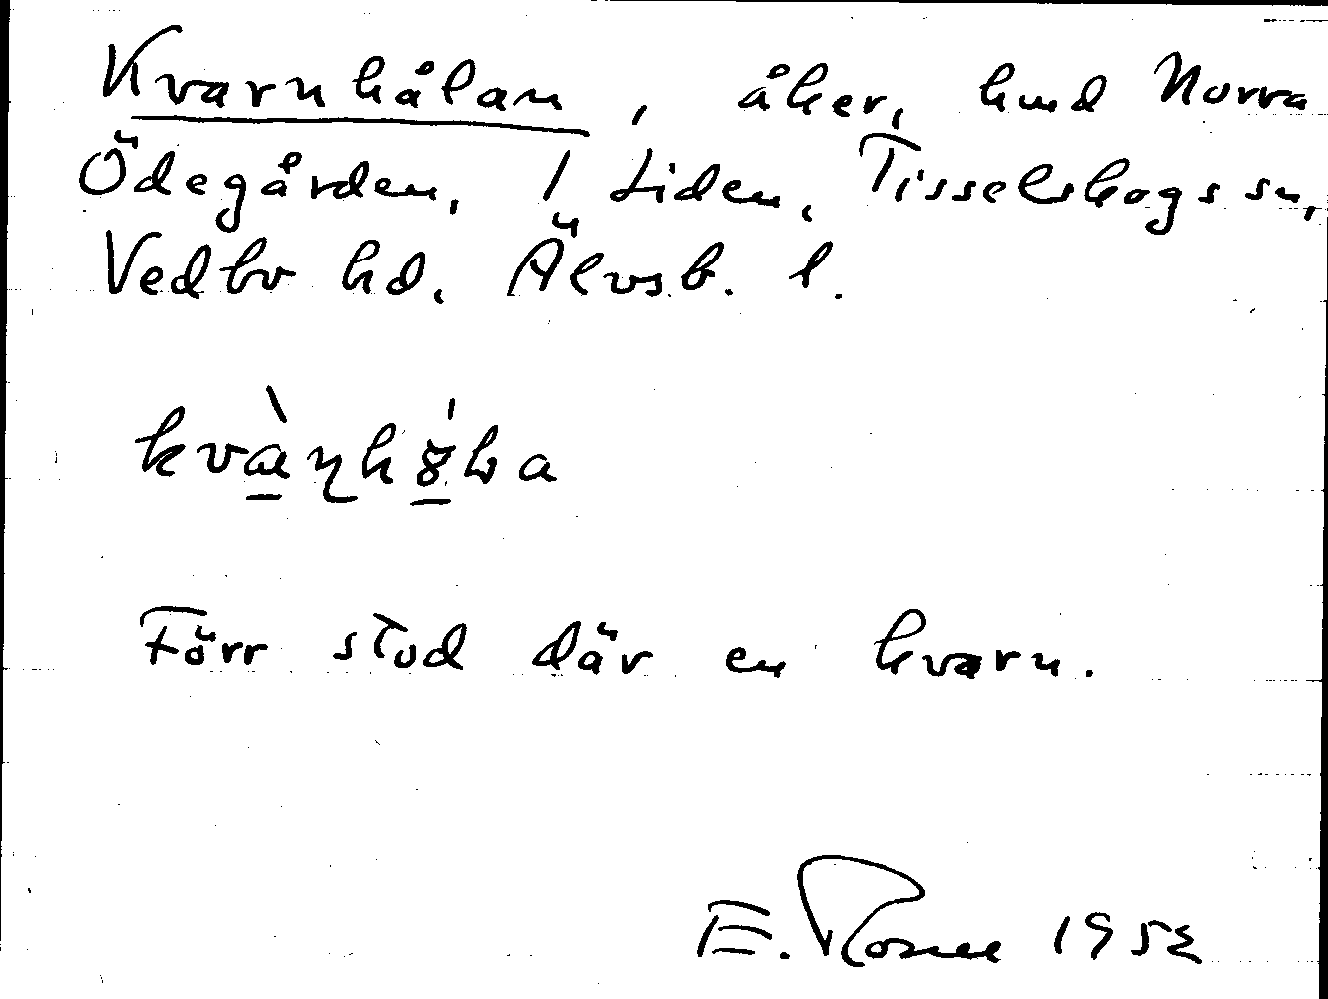 Kvarnhålan, åker, hmd Norra
Ödegården, 1 Liden, Tisselskogs sn,
Vedbo hd. Älvsb. l.
Förr stod där en kvarn.
E. 1952